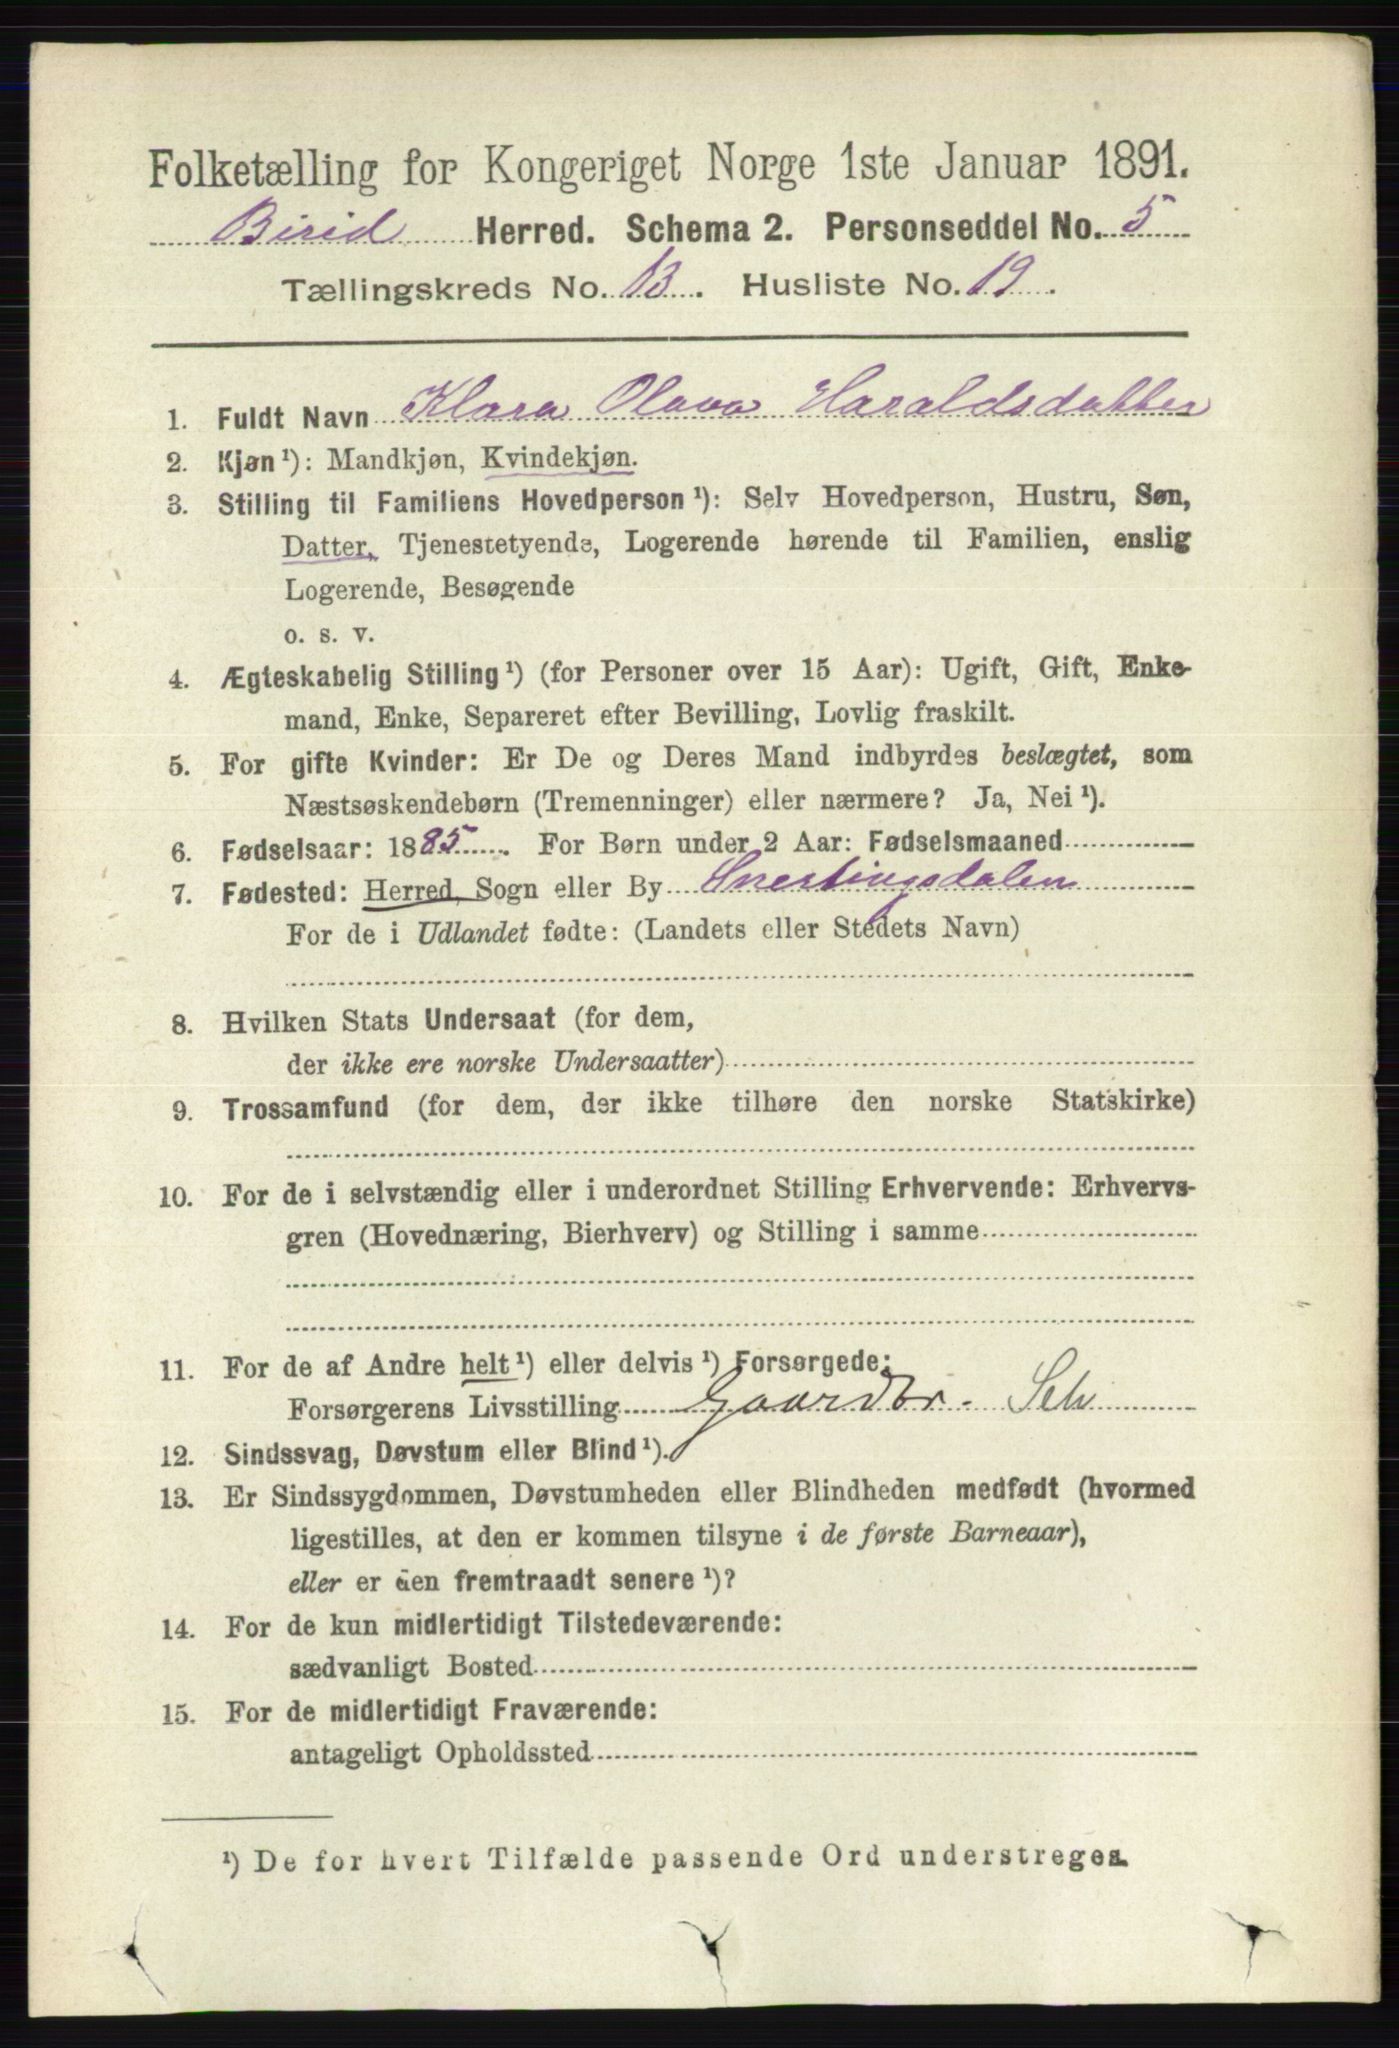 Folketælling for Kongeriget Norge 1ste Januar 1891.
Birid Herred. Schema 2. Personseddel No. 5
Tællingskreds No. 13. Husliste No. 19.
1. Fuldt Navn Klara Olava Haraldsdatter
2. Kjøn¹): Mandkjøn, Kvindekjøn.
3. Stilling til Familiens Hovedperson¹): Selv Hovedperson, Hustru, Søn,
Datter, Tjenestetyende, Logerende hørende til Familien, enslig
Logerende, Besøgende
o. s. v.
4. Ægteskabelig Stilling¹) (for Personer over 15 Aar): Ugift, Gift, Enke-
mand, Enke, Separeret efter Bevilling, Lovlig fraskilt.
5. For gifte Kvinder: Er De og Deres Mand indbyrdes beslægtet, som
Næstsøskendebørn (Tremenninger) eller nærmere? Ja, Nei¹).
6. Fødselsaar: 1885. For Børn under 2 Aar: Fødselsmaaned
7. Fødested: Herred, Sogn eller By Snertingsdalen
For de i Udlandet fødte: (Landets eller Stedets Navn)
8. Hvilken Stats Undersaat (for dem,
der ikke ere norske Undersaatter)
9. Trossamfund (for dem, der ikke tilhøre den norske Statskirke)
10. For de i selvstændig eller i underordnet Stilling Erhvervende: Erhvervs-
gren (Hovednæring, Bierhverv) og Stilling i samme
11. For de af Andre helt¹) eller delvis¹) Forsørgede:
Forsørgerens Livsstilling Gaardbr. Selv
12. Sindssvag, Døvstum eller Blind¹).
13. Er Sindssygdommen, Døvstumheden eller Blindheden medfødt (hvormed
ligestilles, at den er kommen tilsyne i de første Barneaar),
eller er den fremtraadt senere¹)?
14. For de kun midlertidigt Tilstedeværende:
sædvanligt Bosted
15. For de midlertidigt Fraværende:
antageligt Opholdssted
¹) De for hvert Tilfælde passende Ord understreges.